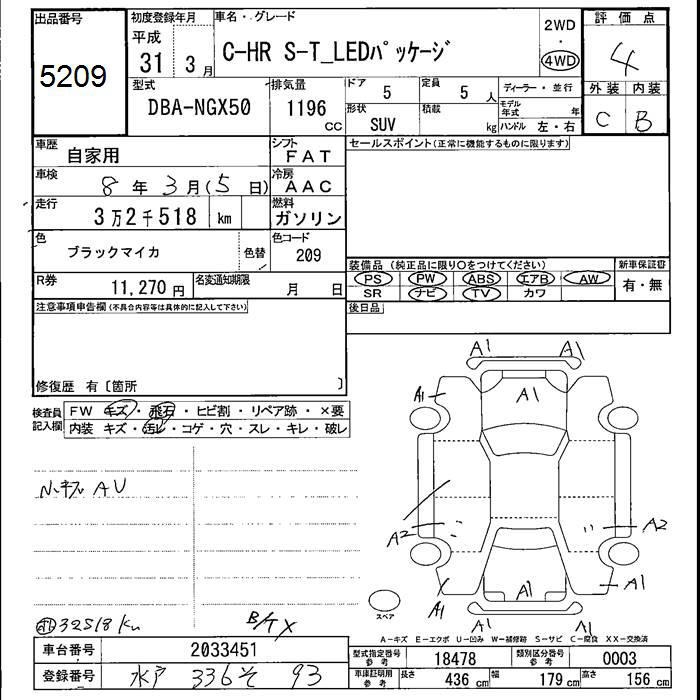 出品番号 初度登録年月 車名・グレード 2WD 評価点
5209 平成 31 3月 C-HR S-T_LEDパッケージ ・ 4WD 4
型式 排気量 ドア 5 定員 5人 ディーラー・並行 外装 内装
DBA-NGX50 1196 cc 形状 SUV 積載 kg モデル年式 年 ハンドル 左・右 C B
車歴 自家用 シフト FAT セールスポイント(正常に機能するものに限ります)
車検 8年 3月(5日) 冷房 AAC
走行 3万2千518 km 燃料 ガソリン
色 ブラックマイカ 色替 色コード 209
装備品 (純正品に限り○をつけてください) 新車保証書
R券 11,270円 名変通知期限 月 日 PS PW ABS エアB AW 有・無
SR ナビ TV カワ
注意事項申告欄(不具合内容等は具体的に記入して下さい) 後日品
修復歴 有〔箇所 〕
検査員記入欄 FW キズ・飛石・ヒビ割・リペア跡・×要
内装 キズ・汚レ・コゲ・穴・スレ・キレ・破レ
A1 A1
A1 A1
A2 A2
A1 A1 A1
A1 A1
スペア
32518km
A-キズ E-エクボ U-凹み W-補修跡 S-サビ C-腐食 XX-交換済
車台番号 2033451 型式指定番号 参考 18478 類別区分番号 参考 0003
登録番号 水戸 336 そ 93 車庫証明用 参考 長さ 436 cm 幅 179 cm 高さ 156 cm